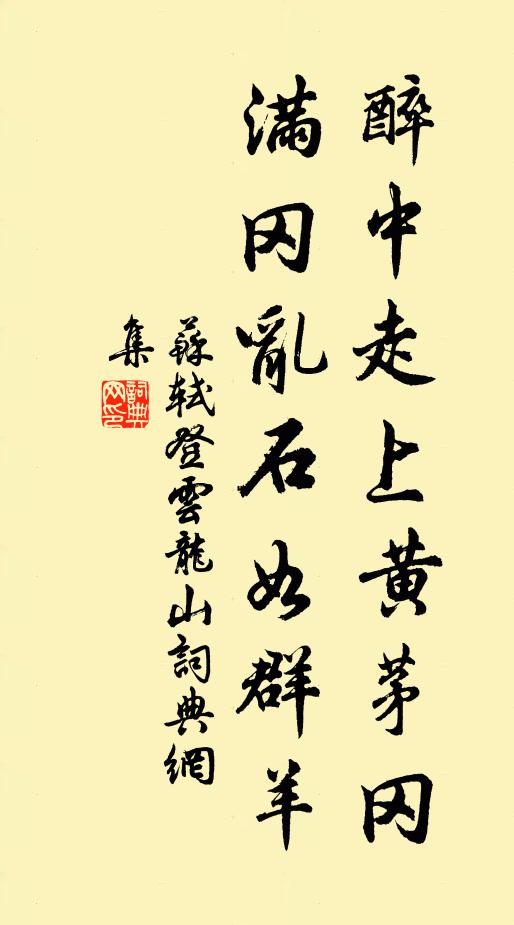 醉中走上黃茅冈
滿冈亂石如群羊
蘇軾登雲龍山詞典網
集
詞典
网印